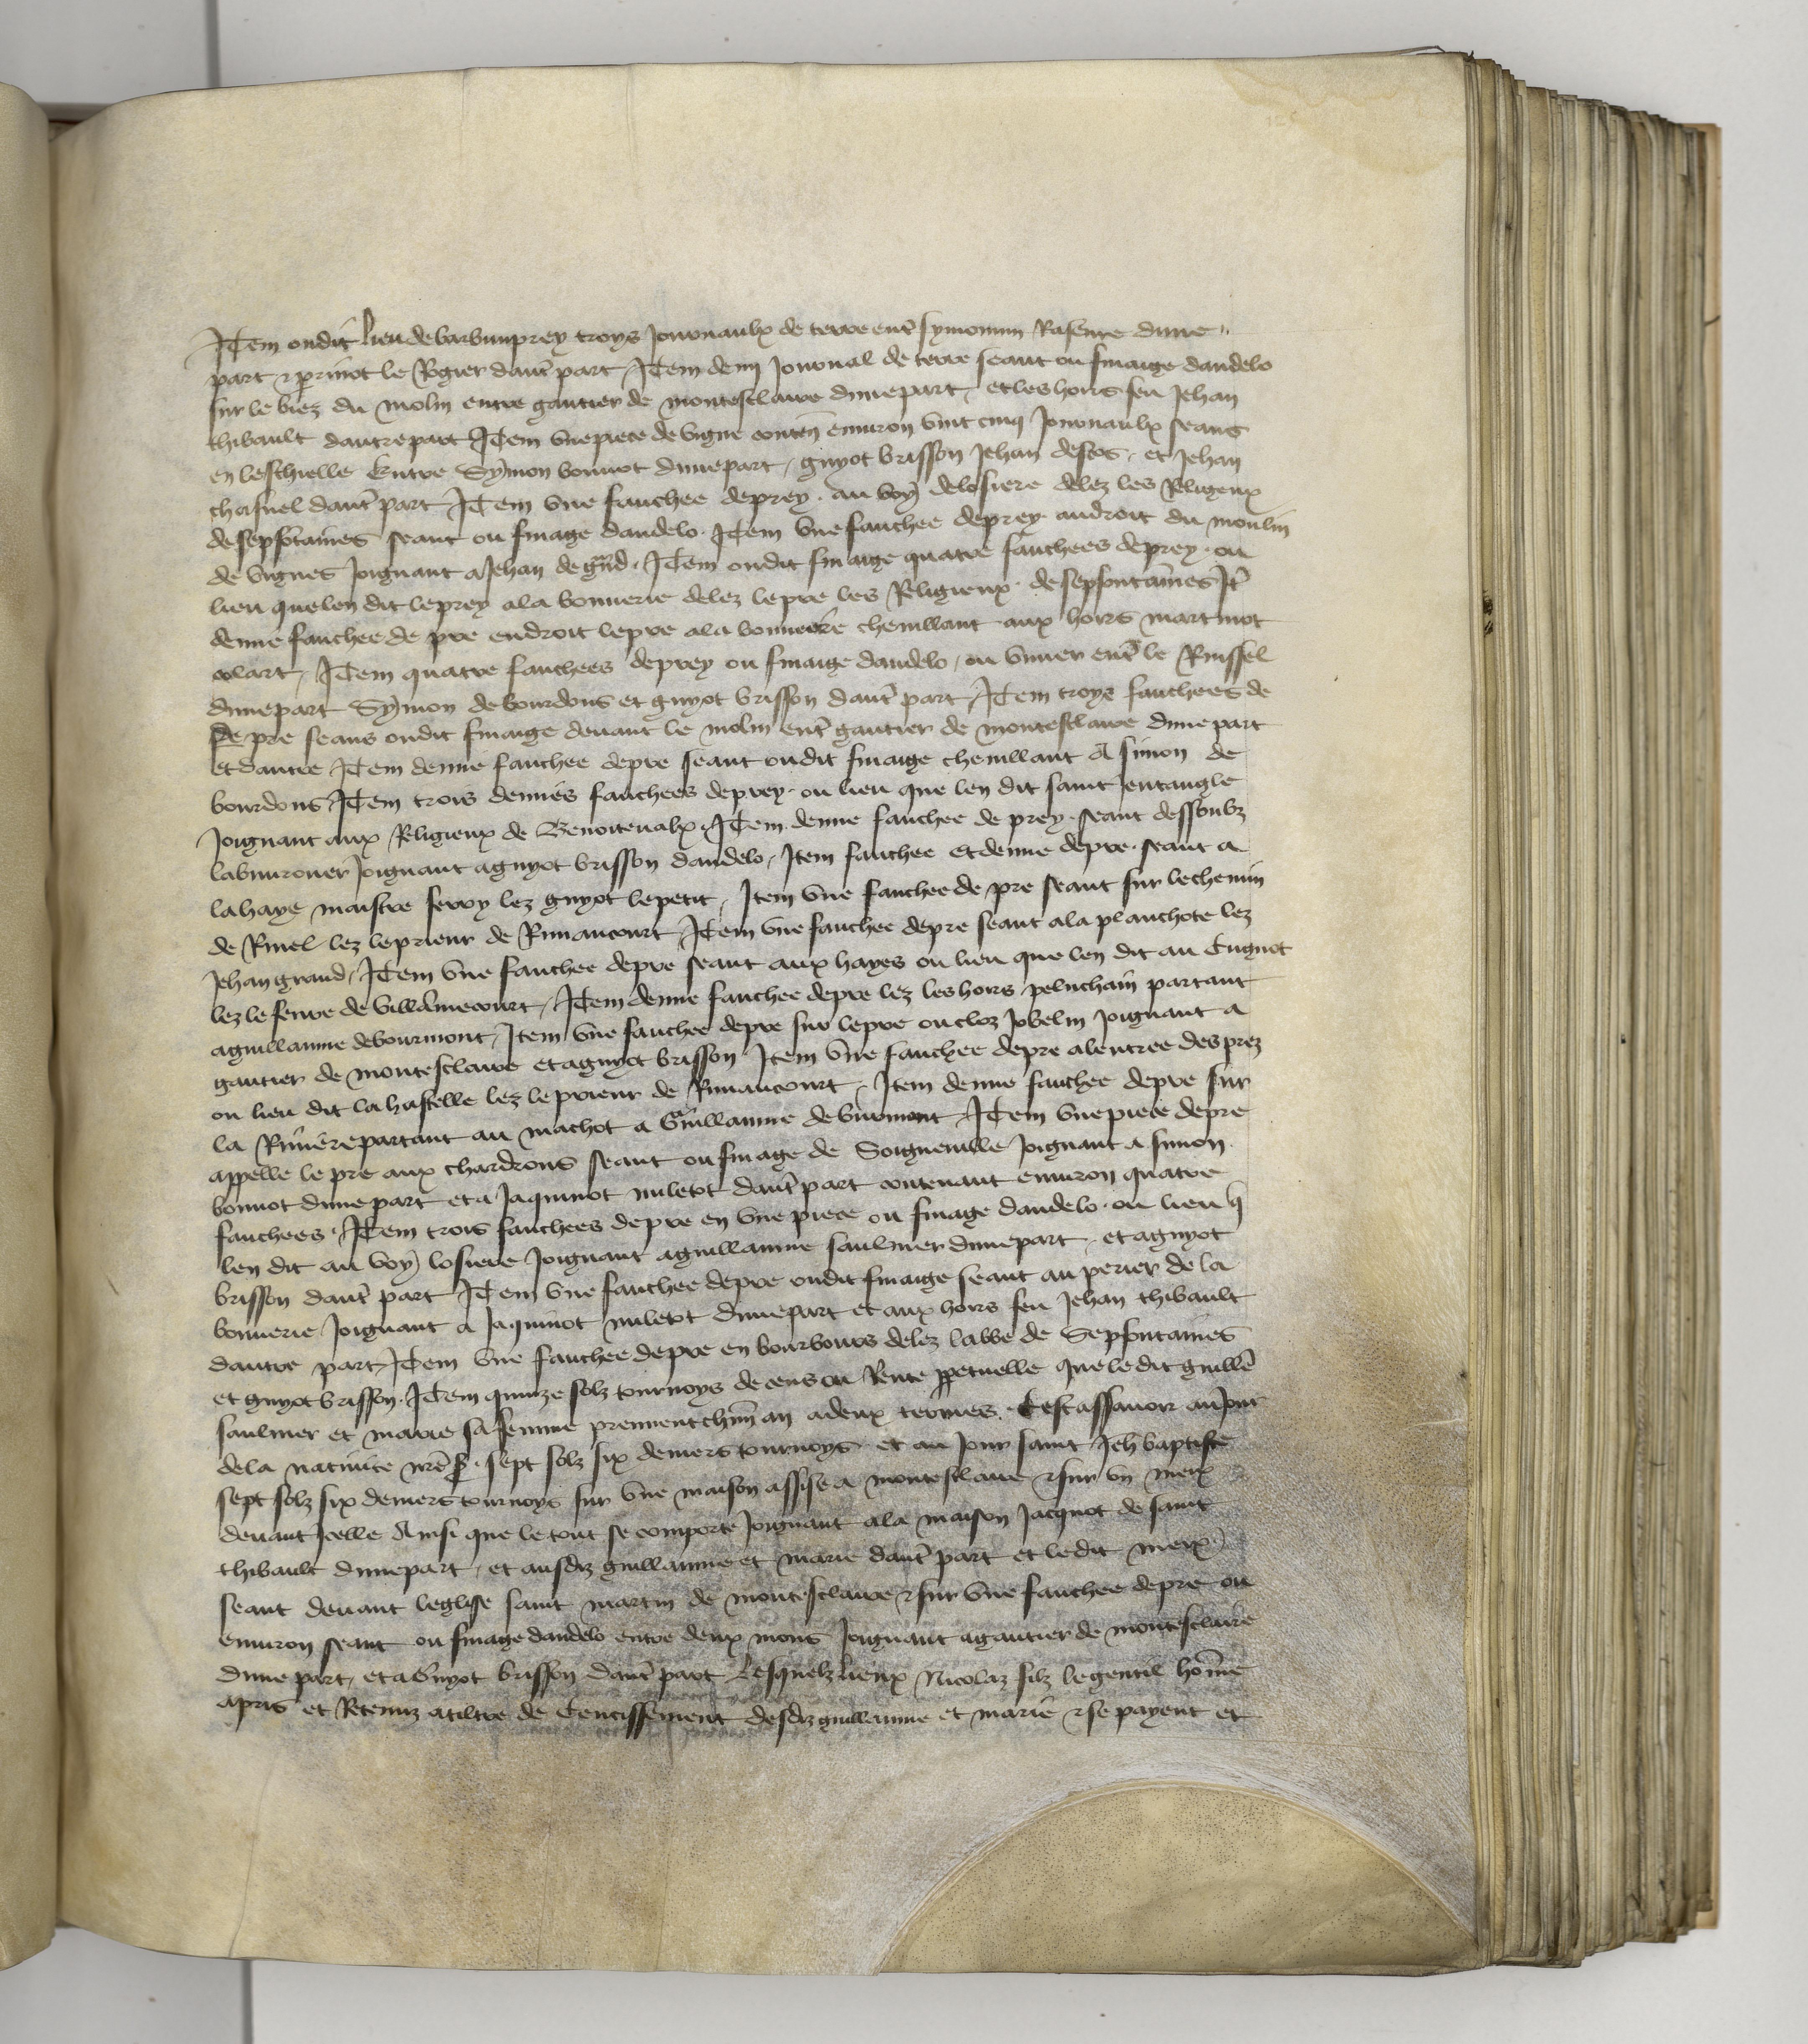 Item ondit lieu de barbunprey troys Jornaulx de terre ent' symonnin Rasenre dune
part & prinot le Rogier daut' part / Item demj Jornal de terre seant ou finaige dandelo
sur le biez du molin entre gautier de montesclaire dunepart / et les hoirs feu Jehan
thibault dautre part Item vne piece de vigne conten' enuiron vint cinq Jornaulx seans
en leschielle Entre Symon bonnot dunepart / guyot brisson Jehan descos / et Jehan
chasnel daut' part Item vne fauchee de prey au voy de losiere delez les Religieux
de sepfotaines seant ou finage dandelo. Item vne fauchee de prey androit du moulin
de vignes Joignant a Jehan de grand. Item ondit finaige quatre fauchees de prey ou
lieu que len dit le prey a la bonnerie delez le pre les Religieux de sepfontaines It'
demie fauchee de pre endroit le pre a la bonnerre chemllant aux hoirs martinot
colart / Item quatre fauchees de prey ou finaige dandelo / ou vnner ent' le Ruissel
dunepart Symon de bourdons et guyot brisson daut' part / Item troys fauchees de
De pre seans ondit finaige deuant le molin ent' gautier de montesclaire dune part
et dautre Item demie fauchee de pre seant ondit finaige chemllant A simon de
bourdons Item trois demies fauchees de prey ou lieu que len dit saint Jentangle
Joignant aux Religieux de Benoiteualx Item demie fauchee de prey seant dessoubz
labuurouer Joignant a guyot brisson dandelo / Item fauchee et demie de pre seant a
la haye maistre ferry lez guyot le petit / Item vne fauchee de pre seant sur le chemin
de Rinel lez le prieur de Rimaucourt / Item vne fauchee de pre seant a la planchote lez
Jehan grand / Item vne fauchee de pre seant aux hayes ou lieu que len dit au Cugnot
lez le feure de villamecourt / Item demie fauchee de pre lez les hoirs peluchain partant
a guillaume de bourmont / Item vne fauchee de pre sur le pre ou cloz Jobelin Joignant a
gautier de montesclaire et a guyot brisson Item vne fauchee de pre a lentree des prez
ou lieu dit la hastelle lez le prieur de Rimaucourt / Item demie fauchee de pre sur
la Riuiere partant au machot a Guillaume de burmont Item vne piece de pre
appelle le pre aux chardrons seant ou finage de Soigneuille Joignant a simon
bonnot dune part et a Jaquinot muletot daut' part contenant enuiron quatre
fauchees Item trois fauchees de pre en vne piece ou finage dandelo ou lieu q'
len dit au voy losiere Joignant a guillaume saulnier dunepart et a guyot
brisson daut' part Item vne fauchee de pre ondit finaige seant au perier de la
bonnerie Joignant a Jaquinot muletot dunepart et aux hoirs feu Jehan thibault
dautre part Item vne fauchee de pre en bourbours delez labbe de Sepfontaines
et guyot brisson Item quinze solz tournoys de cens ou Rente ppetuelle que le dit guill'e
saulnier et marie sa femme prennent ch'un an a deux termes. Cest assauoir au Jour
de la natiuite nre s'. sept solz six deniers tournoys et au Jour saint Jeh' baptiste
sept solz six deniers tournoys sur vne maison assise a montesclaire & sur vn meix
deuant Jcelle Ainsi que le tout se comporte Joignant a la maison Jacquot de saint
thibault dunepart / et ausdiz guillaume et marie daut' part et ledit meix
seant deuant leglise saint martin de montesclaire & sur vne fauchee de pre ou
enuiron seant ou finage dandelo entre deux mons Joignant a gautier de montesclaire
dune part, et a Guyot brisson daut' part Lesquelz lieux Nicolaz filz le gentil ho'me
a pris et Retenuz a tiltre de Cencissement desdiz guillaume et marie & se payent et